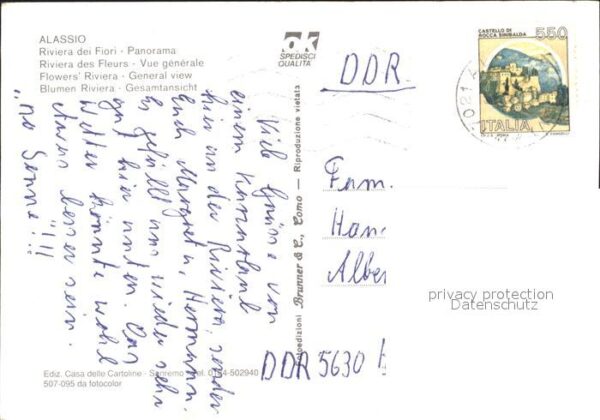 ALASSIO
Riviera dei Fiori · Panorama
Riviera des Fleurs · Vue générale
Flowers' Riviera · General view
Blumen Riviera · Gesamtansicht
SPEDISCI
QUALITÀ
CASTELLO DI
ROCCA SINIBALDA
550
ITALIA
DDR
Viele Grüsse von
einem Kurzurlaub
hier an der Riviera, senden
Euch Margret u. Hermann.
Es gefällt uns wieder sehr
gut hier unten. Das
Wetter könnte wohl
etwas besser sein.
"no Sonne"!!!
Brunner & C., Como — Riproduzione vietata
Fam.
Han
Alber
DDR 5630 H
privacy protection
Datenschutz
Ediz. Casa delle Cartoline - Sanremo - Tel. 0184-502940
507-095 da fotocolor